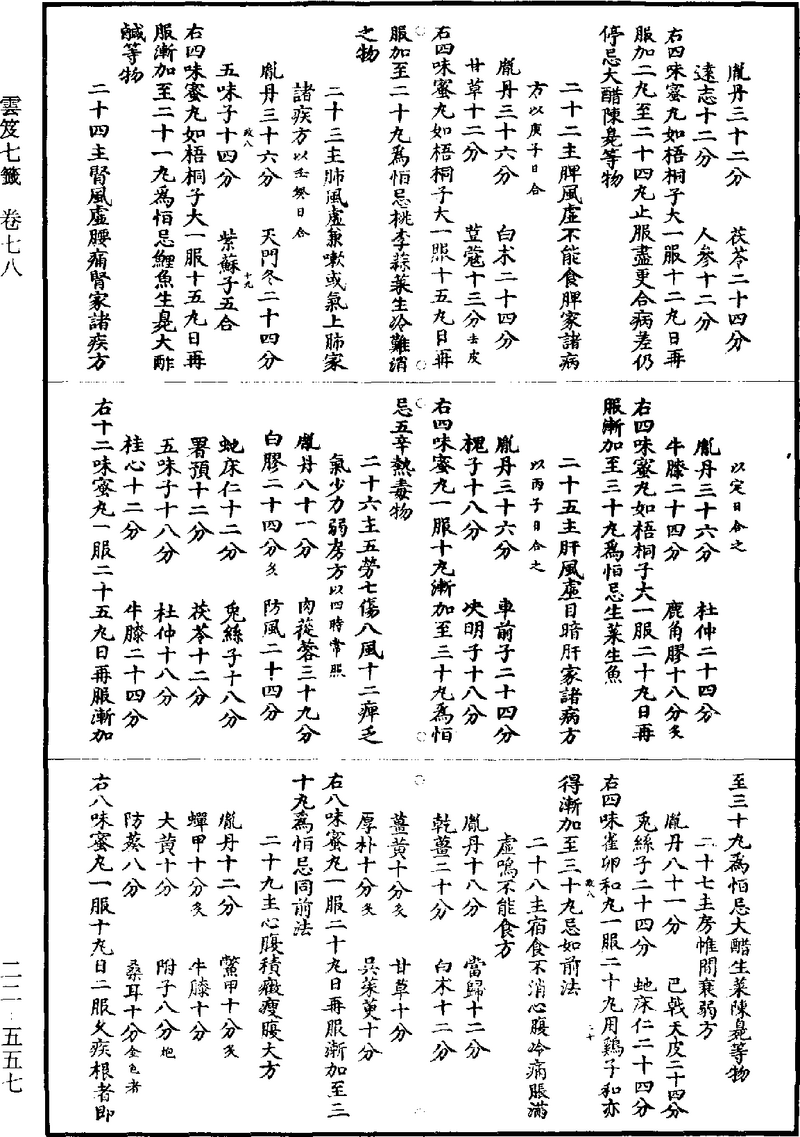 雲笈七籤　卷七八
胤丹三十二分　茯苓二十四分
遠志十二分　人參十二分
右四味蜜丸如梧桐子大一服十二丸日再
服加二丸至二十四丸止服盡更合病差仍
停忌大醋陳臭等物
二十二主脾風虛不能食脾家諸病
方以庚子日合
胤丹三十六分　白朮二十四分
甘草十二分　荳蔻十三分去皮
右四味蜜丸如梧桐子大一服十五丸日再
服加至二十丸爲恒忌桃李蒜菜生冷難消
之物
二十三主肺風虛兼嗽或氣上肺家
諸疾方以壬癸日合
胤丹三十六分　天門冬二十四分
五味子十四分　紫蘇子五合
右四味蜜丸如梧桐子大一服十五丸日再
服漸加至二十一丸爲恒忌鯉魚生臭大酢
鹹等物
二十四主腎風虛腰痛腎家諸疾方
以定日合之
胤丹三十六分　杜仲二十四分
牛膝二十四分　鹿角膠十八分炙
右四味蜜丸如梧桐子大一服二十丸日再
服漸加至三十丸爲恒忌生菜生魚
二十五主肝風虛目暗肝家諸病方
以丙子日合之
胤丹三十六分　車前子二十四分
槐子十八分　決明子十八分
右四味蜜丸一服十丸漸加至三十丸爲恒
忌五辛熱毒物
二十六主五勞七傷八風十二痺乏
氣少力弱房方以四時常服
胤丹八十一分　肉蓯蓉三十九分
白膠二十四分炙　防風二十四分
蛇床仁十二分　兎絲子十八分
署預十二分　茯苓十二分
五味子十八分　杜仲十八分
桂心十二分　牛膝二十四分
右十二味蜜丸一服二十五丸日再服漸加
至三十丸爲恒忌大醋生菜陳臭等物
二十七主房帷間衰弱方
胤丹八十一分　巴戟天皮二十四分
兎絲子二十四分　蛇床仁二十四分
右四味雀卵和丸一服二十丸用鷄子和亦
得漸加至三十丸忌如前法
二十八主宿食不消心腹冷痛脹滿
虛鳴不能食方
胤丹十八分　當歸十二分
乾薑二十分　白朮十二分
薑黄十分炙　甘草十分
厚朴十分炙　吳茱萸十分
右八味蜜丸一服二十丸日再服漸加至三
十丸爲恒忌同前法
二十九主心腹積癥瘦腰大方
胤丹十二分　鱉甲十分炙
蟬甲十分炙　牛膝十分
大黄十分　附子八分炮
防葵八分　桑耳十分金色者
右八味蜜丸一服十丸日二服久疾根者即
二二－五五七